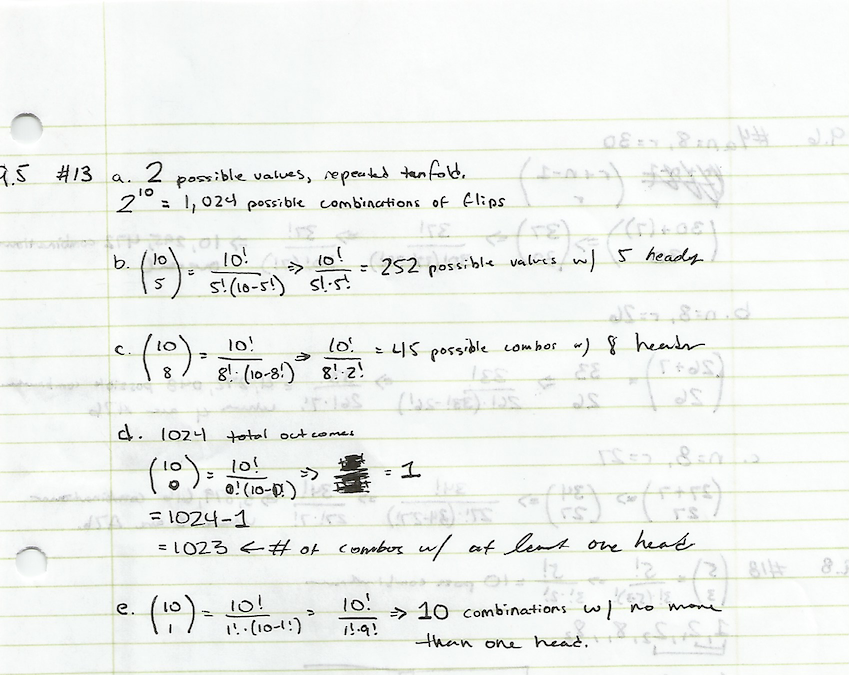 9.5 #13 a. 2 possible values, repeated tenfold.
2^10 = 1,024 possible combinations of flips
b. (10 5) = 10!/5!(10-5!) => 10!/5!·5! = 252 possible values w/ 5 heads
c. (10 8) = 10!/8!·(10-8!) => 10!/8!·2! = 45 possible combos w/ 8 heads
d. 1024 total outcomes
(10 0) = 10!/0!(10-0!) => = 1
= 1024-1
= 1023 <- # of combos w/ at least one head
e. (10 1) = 10!/1!·(10-1!) = 10!/1!·9! => 10 combinations w/ no more
than one head.